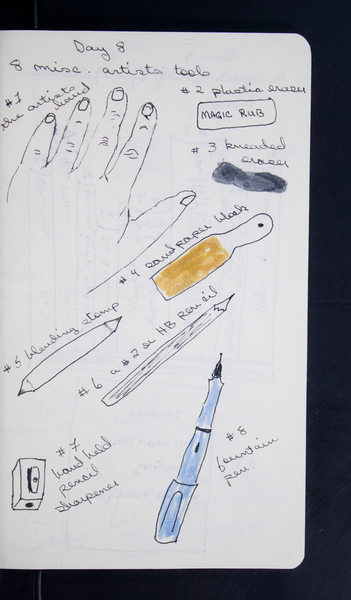 Day 8
8 misc. artists tools
#1
the artists
hand
#2 plastic eraser
MAGIC RUB
#3 kneaded
eraser
#4 sandpaper block
#5 blending stamp
#6 a #2 or HB pencil
#7
hand held
pencil
sharpener
#8
fountain
pen